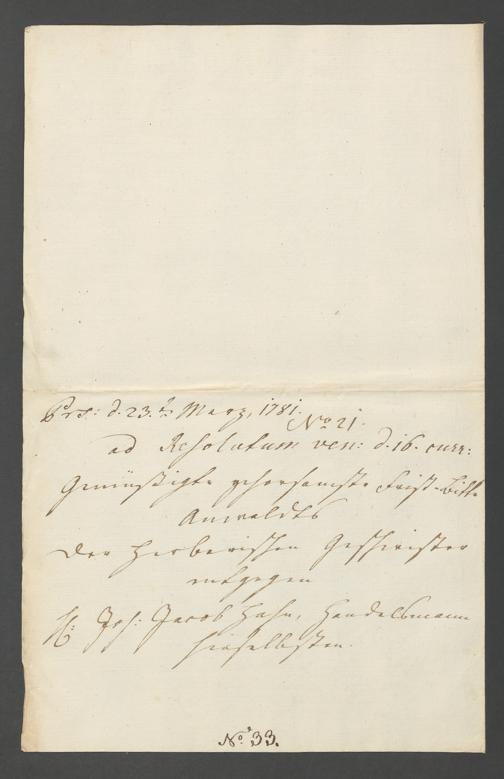 Prs: d. 23.t Merz, 1781.
No 21.
ad Resolutum ven: d. 16. curr:
Gemüßigte gehorsamste Frist-Bitte
Anwaldts
der Herberischen Geschwister
entgegen
H: Joh: Jacob Hahn, Handelsmann
hieselbsten.
No 33.